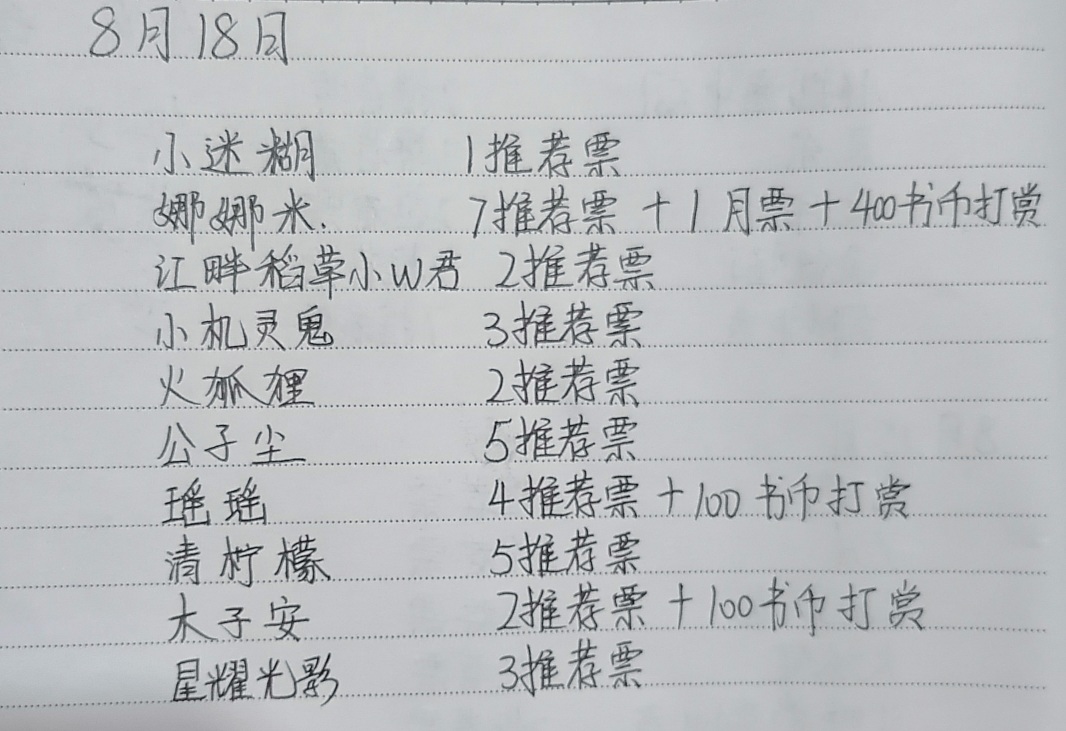 8月18日
小迷糊 1推荐票
娜娜米. 7推荐票+1月票+400书币打赏
江畔稻草小W君 2推荐票
小机灵鬼 3推荐票
火狐狸 2推荐票
公子尘 5推荐票
瑶瑶 4推荐票+100书币打赏
清柠檬 5推荐票
木子安 2推荐票+100书币打赏
星耀光影 3推荐票